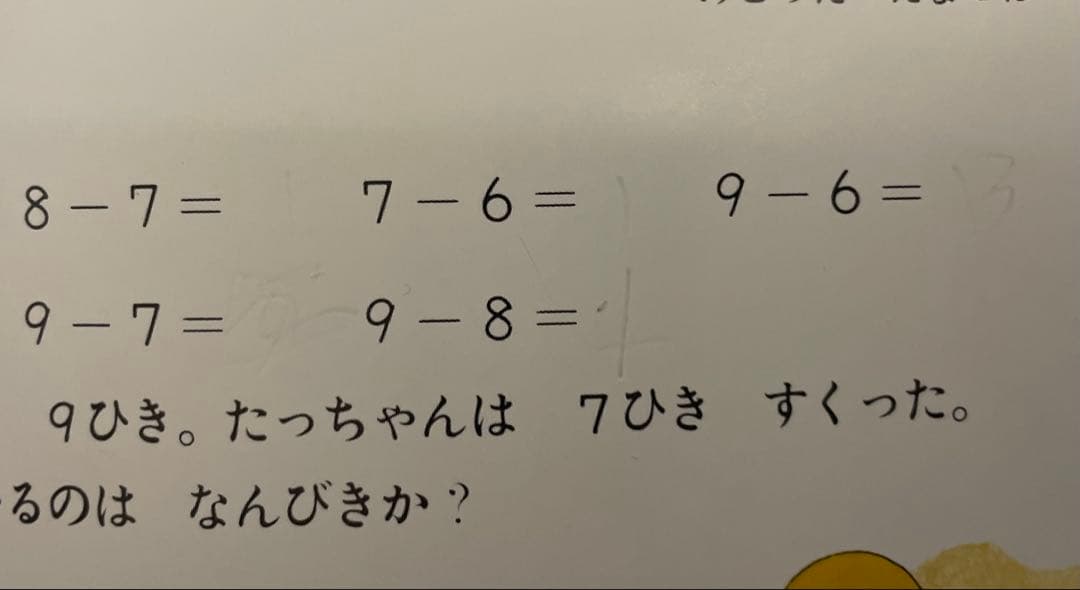 8－7＝ 7－6＝ 9－6＝
9－7＝ 9－8＝
9ひき。たっちゃんは 7ひき すくった。
るのは なんびきか？